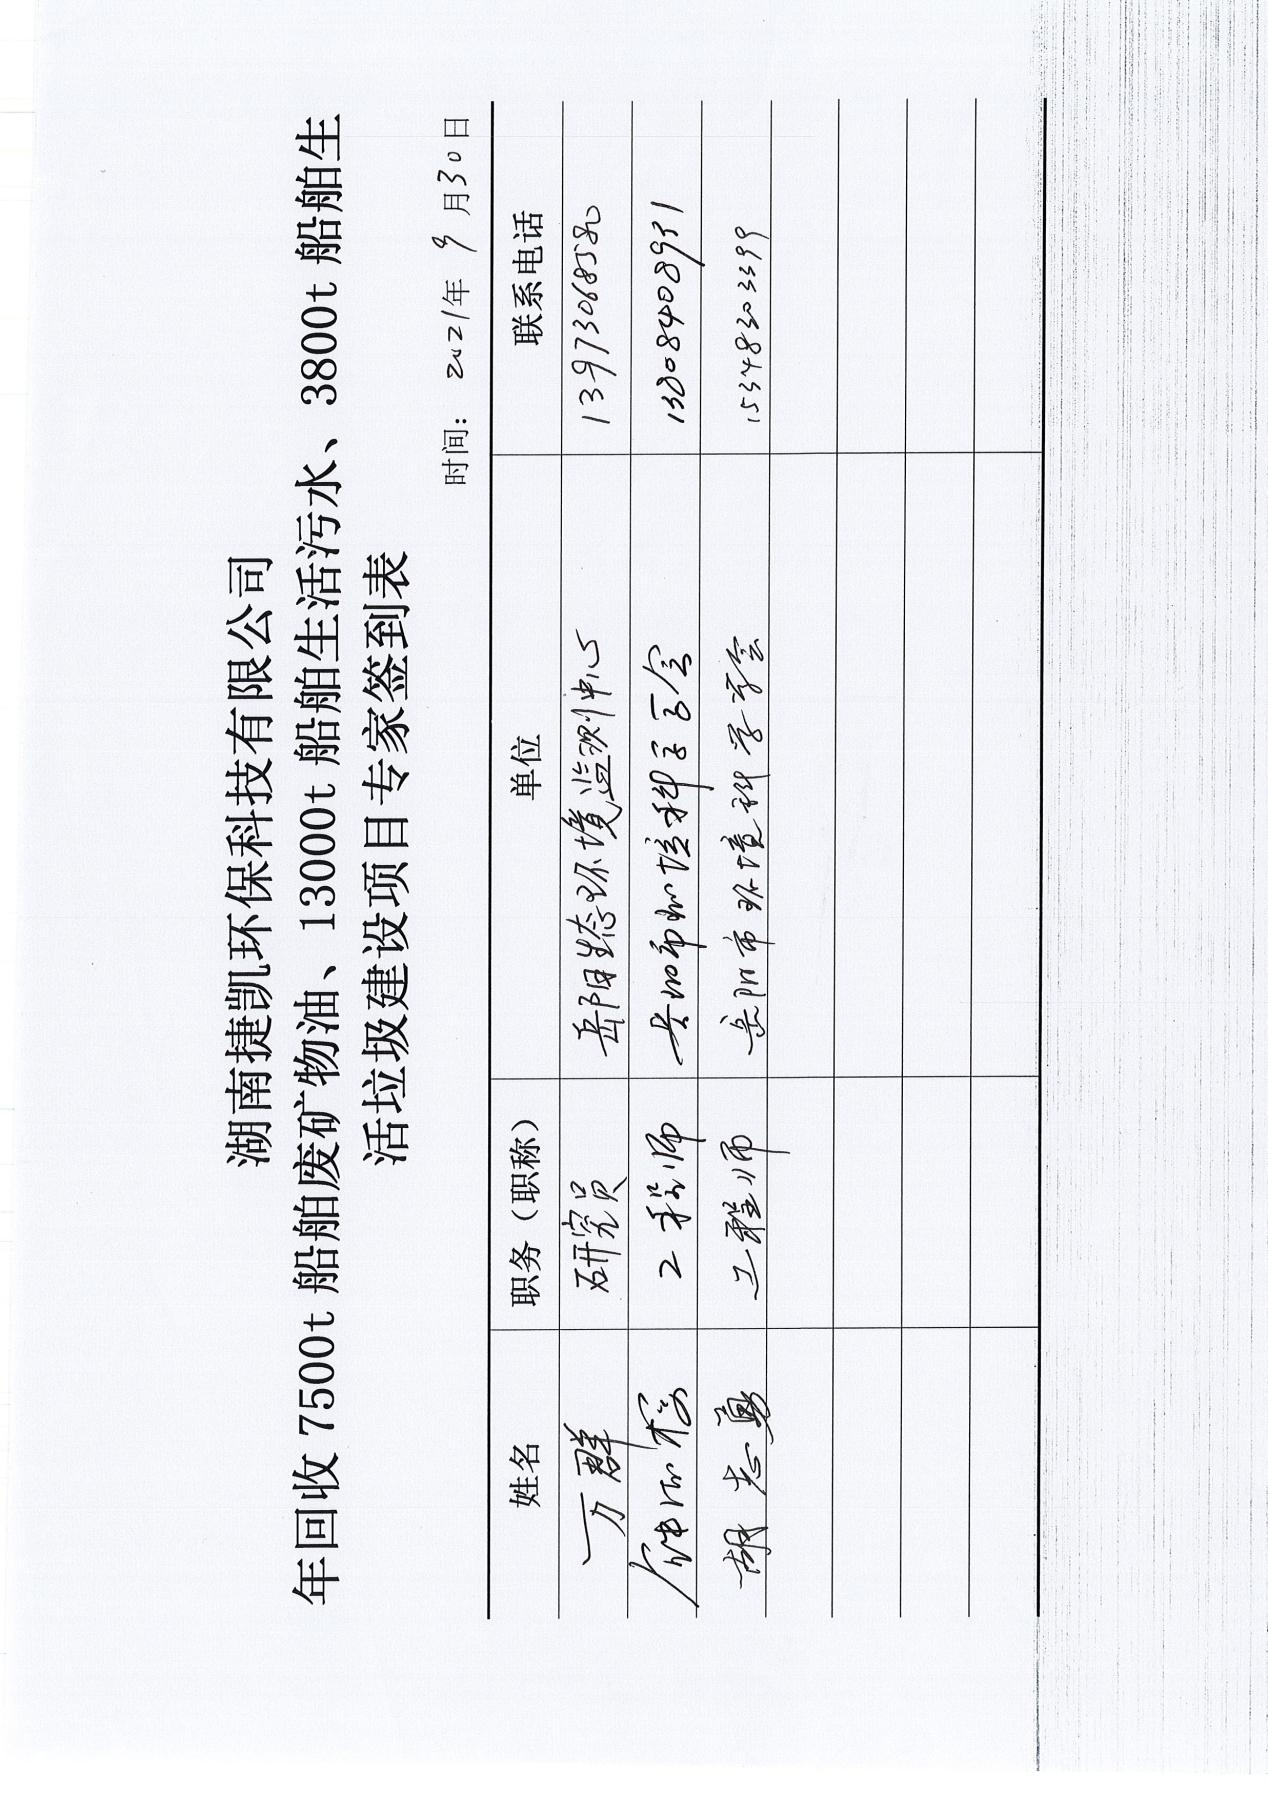 湖南捷凯环保科技有限公司
年回收7500t船舶废矿物油、13000t船舶生活污水、3800t船舶生
活垃圾建设项目专家签到表
时间：2021年 9 月30日
姓名 职务（职称） 单位 联系电话
万群 研究员 岳阳生态环境监测中心
工程师 岳阳市环境科学学会 13808408931
胡志勇 工程师 岳阳市环境科学学会 15348303399